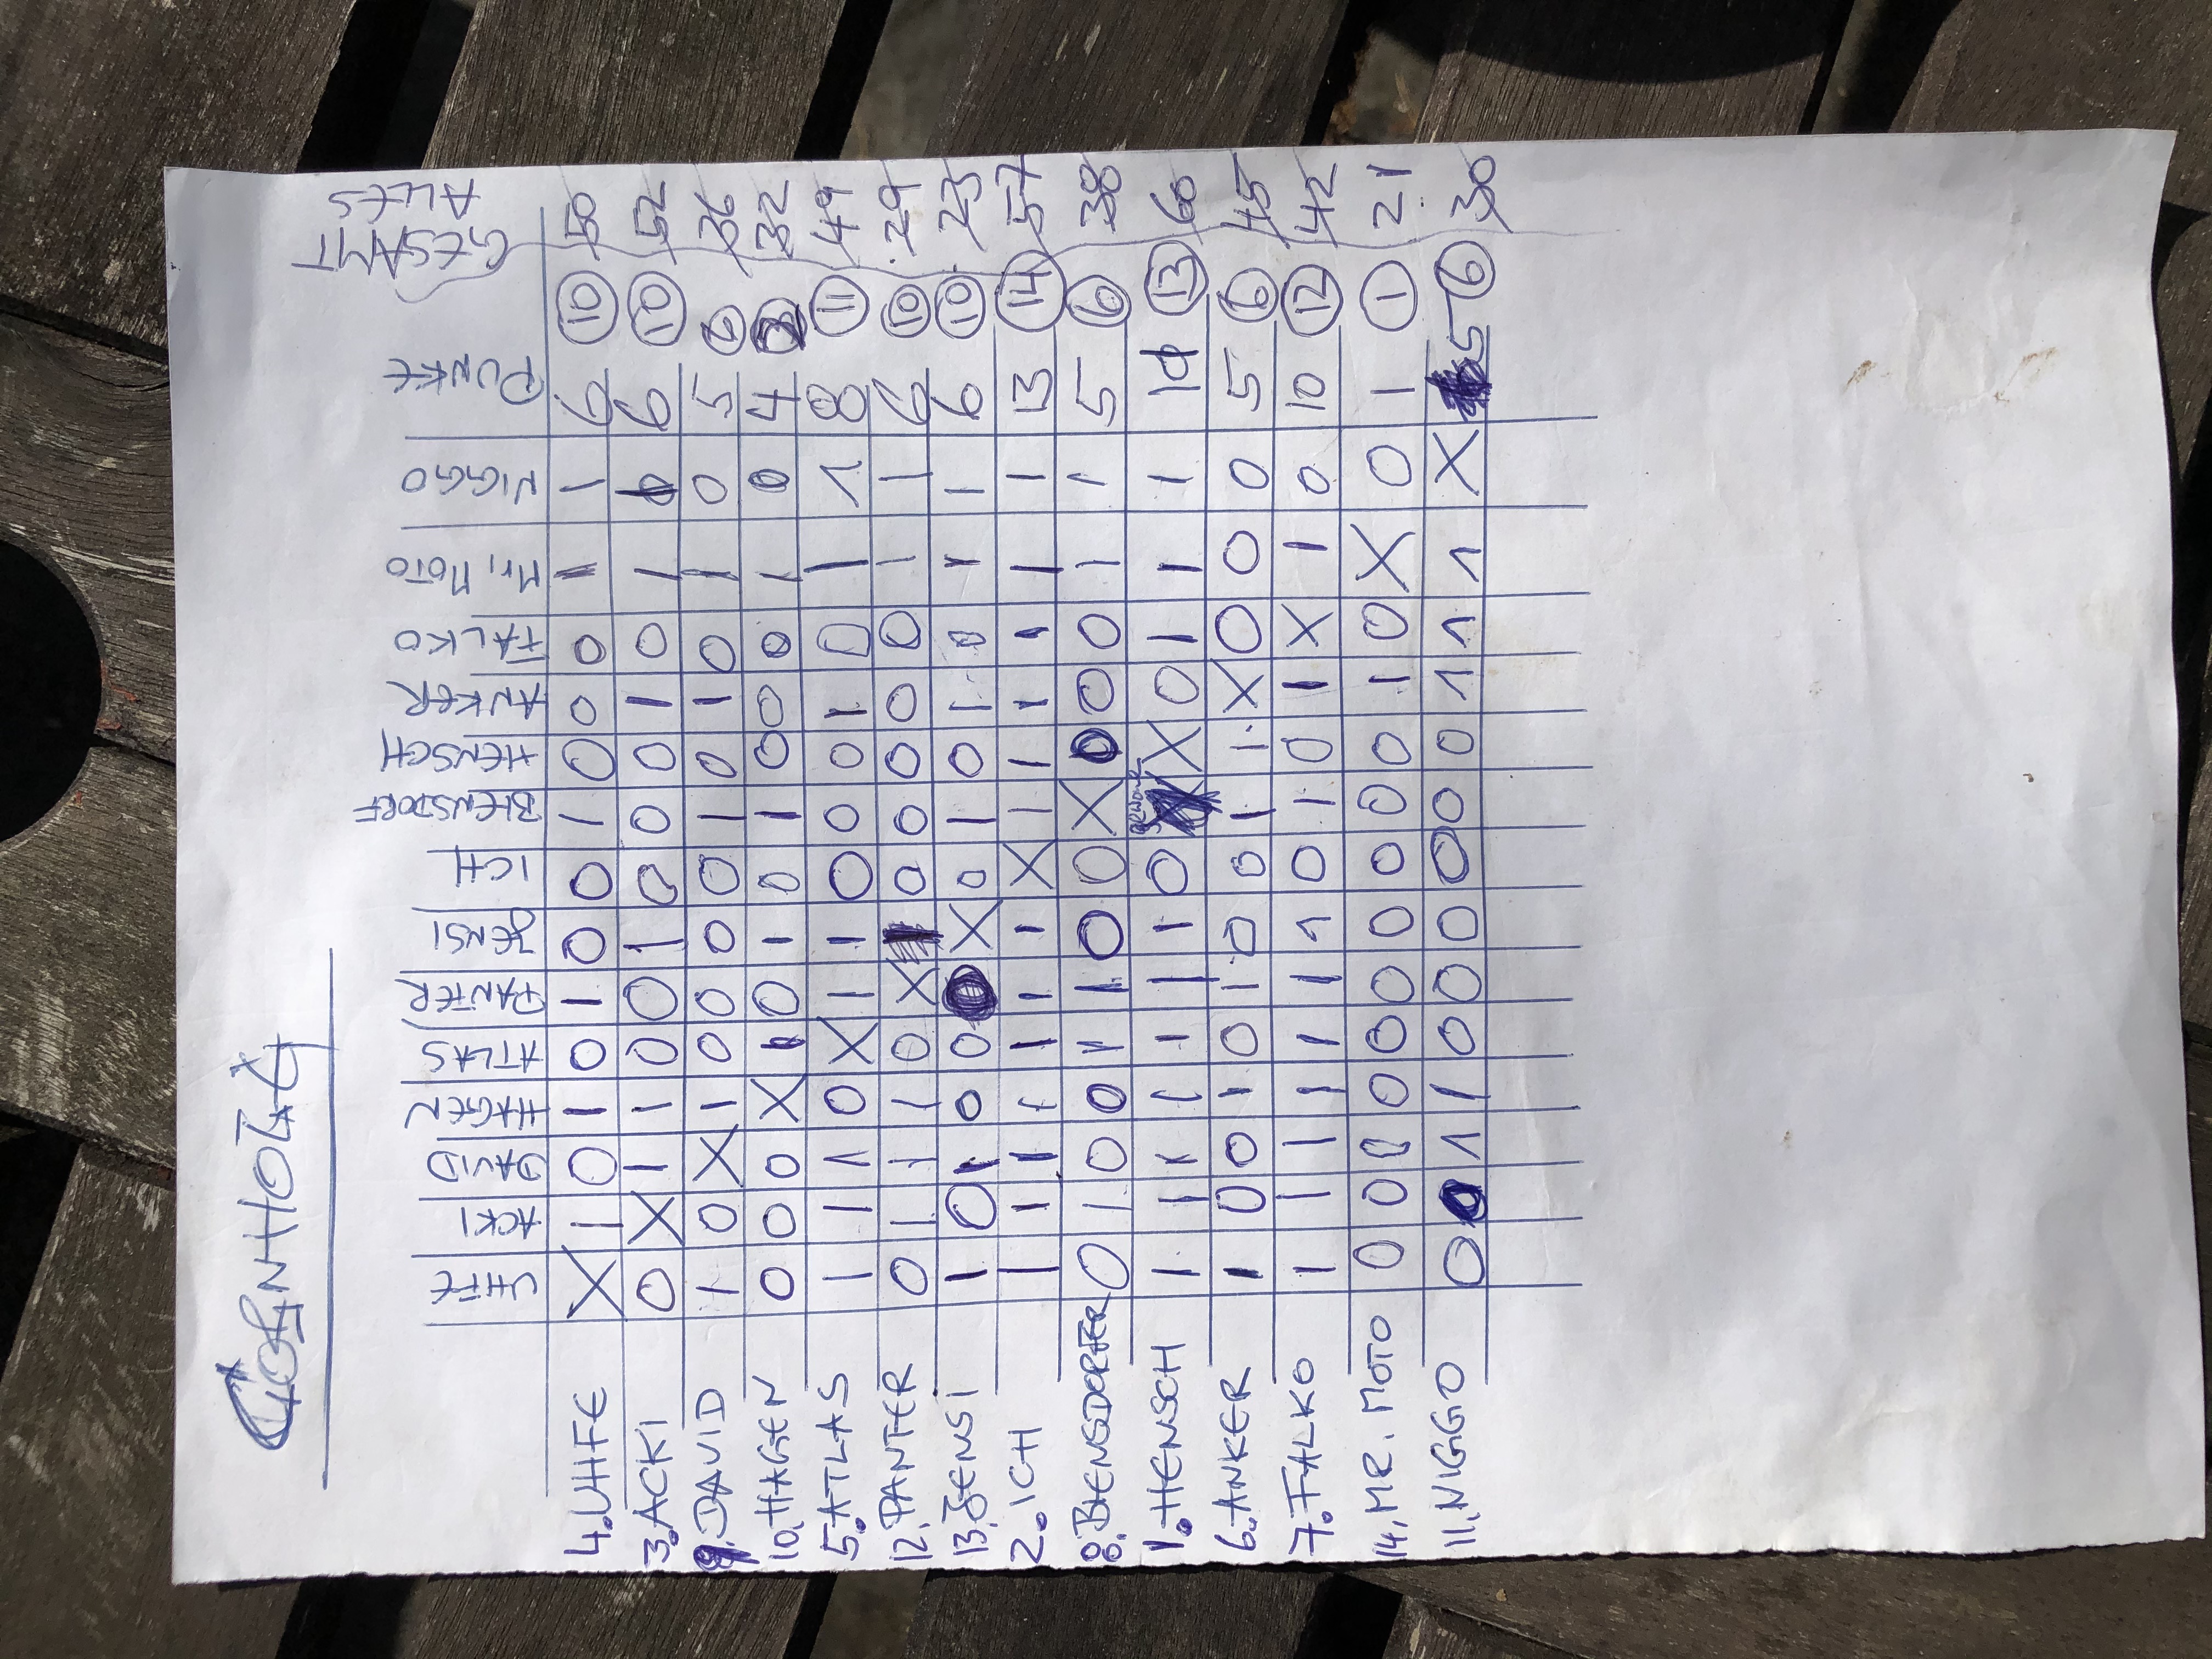 CORNHOLE
UHFE ACKI DAVID HAGEN ATLAS PANTER JENSI ICH BIENSDORF HENSCH ANKER FALKO Mr. MOTO NIGGO PUNKE GESAMT ALLES
4. UHFE X 1 0 1 0 1 0 0 1 0 0 0 1 1 6 10 50
3. ACKI 0 X 1 1 0 0 1 0 0 0 1 0 1 6 10 52
9. DAVID 1 0 X 1 0 0 0 0 1 0 1 0 1 0 5 6 36
10. HAGEN 0 0 0 X 1 0 1 0 1 0 0 0 1 0 4 32
5. ATLAS 1 1 1 0 X 1 1 0 0 0 1 0 1 1 8 11 49
12. PANTER 0 1 1 1 0 X 1 0 0 0 0 0 1 1 6 10 29
13. JENSI 1 0 1 0 0 0 X 0 1 0 1 0 1 1 6 10 23
2. ICH 1 1 1 1 1 1 1 X 1 1 1 1 1 1 13 14 57
8. BIENSDORFER 0 1 0 0 1 1 0 0 X 0 0 0 1 1 5 6 38
gewonn
1. HENSCH 1 1 1 1 1 1 1 0 X 0 1 1 1 11 13 60
6. ANKER 1 0 0 1 0 1 0 0 1 1 X 0 0 0 5 6 45
7. FALKO 1 1 1 1 1 1 1 0 1 0 1 X 1 0 10 12 42
14. MR. MOTO 0 0 0 0 0 0 0 0 0 0 1 0 X 0 1 1 21
11. NIGGO 0 0 1 1 0 0 0 0 0 0 1 1 1 X 5 6 30